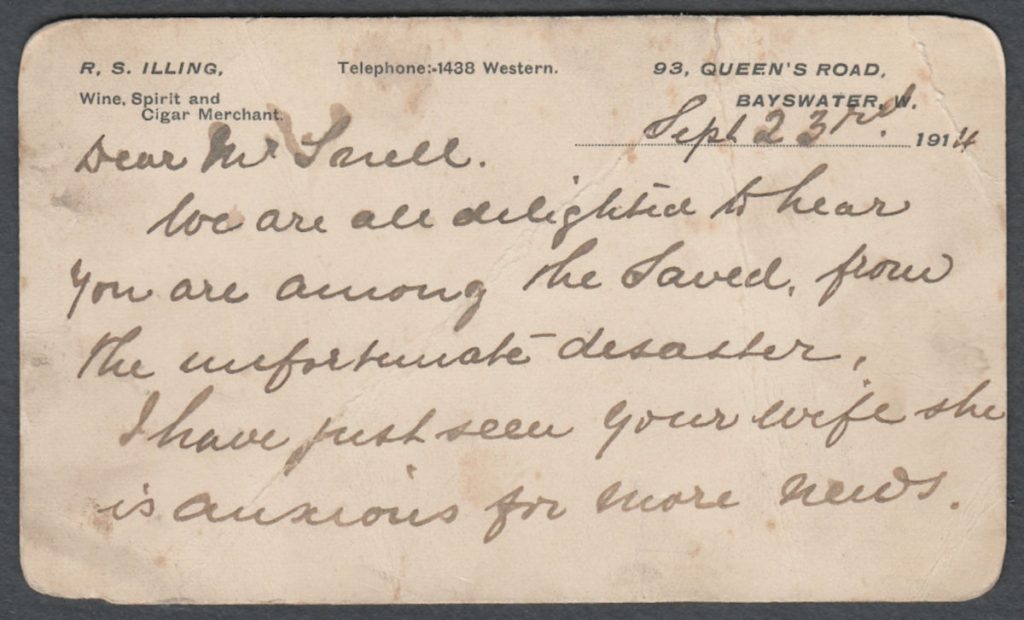 R. S. ILLING,
Wine, Spirit and
Cigar Merchant.
Telephone:-1438 Western.
93, QUEEN'S ROAD,
BAYSWATER, W.
Sept 23rd. 1914
Dear Mr Snell.
We are all delighted to hear
you are among the Saved, from
the unfortunate disaster,
I have just seen your wife she
is anxious for more news.